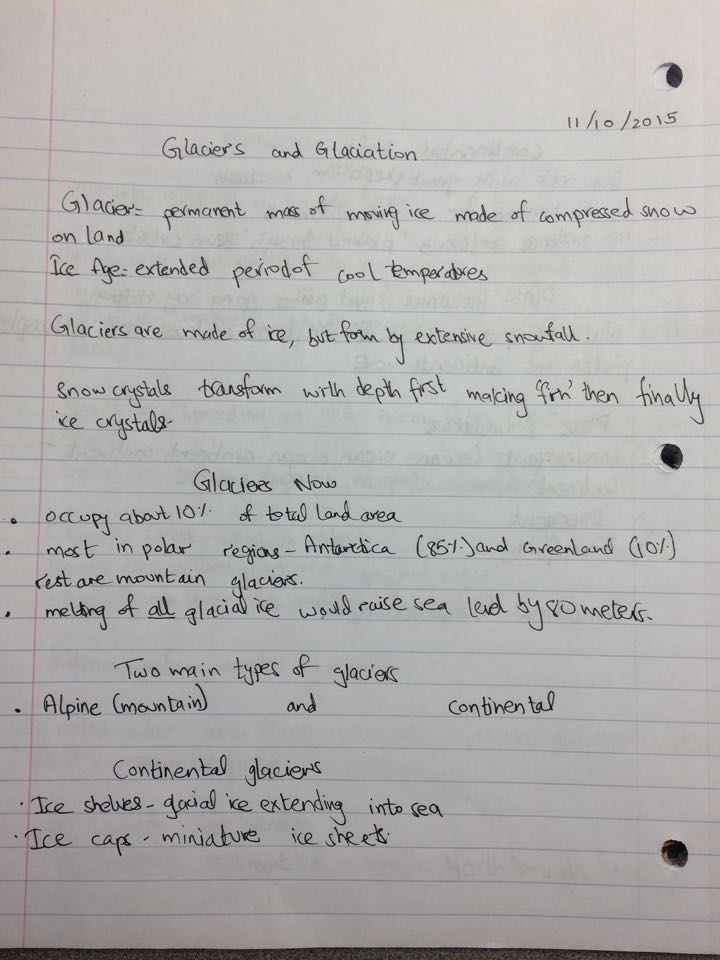 11/10/2015
Glaciers and Glaciation
Glacier= permanent mass of moving ice made of compressed snow
on land
Ice Age= extended period of cool temperatures
Glaciers are made of ice, but form by extensive snowfall.
Snow crystals transform with depth first making 'firn' then finally
ice crystals.
Glaciers Now
• occupy about 10% of total land area
• most in polar regions - Antarctica (85%) and Greenland (10%)
rest are mountain glaciers.
• melting of all glacial ice would raise sea level by 80 meters.
Two main types of glaciers
• Alpine (mountain) and continental
Continental glaciers
• Ice shelves - glacial ice extending into sea
• Ice caps - miniature ice sheets.